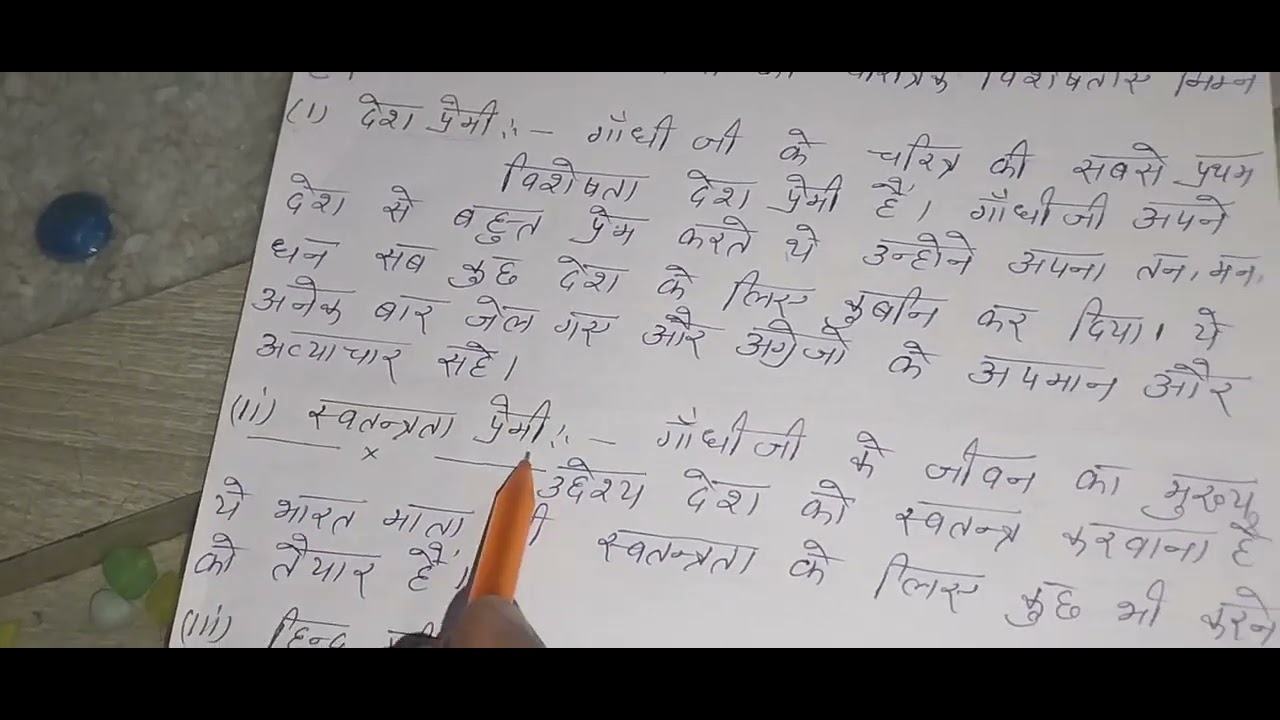 विशेषताएँ निम्न
(i) देश प्रेमी :- गाँधी जी के चरित्र की सबसे प्रथम
विशेषता देश प्रेमी है। गाँधीजी अपने
देश से बहुत प्रेम करते थे उन्होने अपना तन, मन,
धन सब कुछ देश के लिए कुर्बान कर दिया। ये
अनेक बार जेल गए और अंग्रेजो के अपमान और
अत्याचार सहे।
(ii) स्वतन्त्रता प्रेमी :- गाँधीजी के जीवन का मुख्य
उद्देश्य देश को स्वतन्त्र करवाना है
ये भारत माता की स्वतन्त्रता के लिए कुछ भी करने
को तैयार हैं।
(iii) हिन्दू